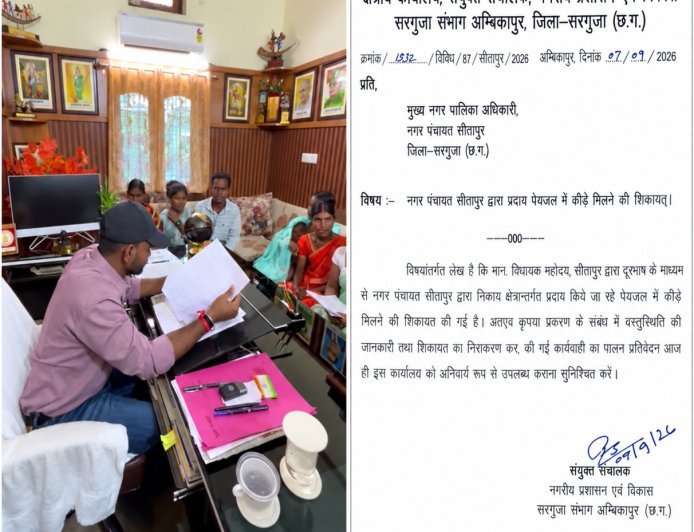 सरगुजा संभाग अम्बिकापुर, जिला–सरगुजा (छ.ग.)
क्रमांक / 1532 / विविध / 87 / सीतापुर / 2026 अम्बिकापुर, दिनांक 07 / 09 / 2026
प्रति,
मुख्य नगर पालिका अधिकारी,
नगर पंचायत सीतापुर
जिला–सरगुजा (छ.ग.)
विषय :– नगर पंचायत सीतापुर द्वारा प्रदाय पेयजल में कीड़े मिलने की शिकायत्।
---000---
विषयांतर्गत लेख है कि मान. विधायक महोदय, सीतापुर द्वारा दूरभाष के माध्यम
से नगर पंचायत सीतापुर द्वारा निकाय क्षेत्रान्तर्गत प्रदाय किये जा रहे पेयजल में कीड़े
मिलने की शिकायत की गई है। अतएव कृपया प्रकरण के संबंध में वस्तुस्थिति की
जानकारी तथा शिकायत का निराकरण कर, की गई कार्यवाही का पालन प्रतिवेदन आज
ही इस कार्यालय को अनिवार्य रूप से उपलब्ध कराना सुनिश्चित करें।
09/9/26
संयुक्त संचालक
नगरीय प्रशासन एवं विकास
सरगुजा संभाग अम्बिकापुर (छ.ग.)